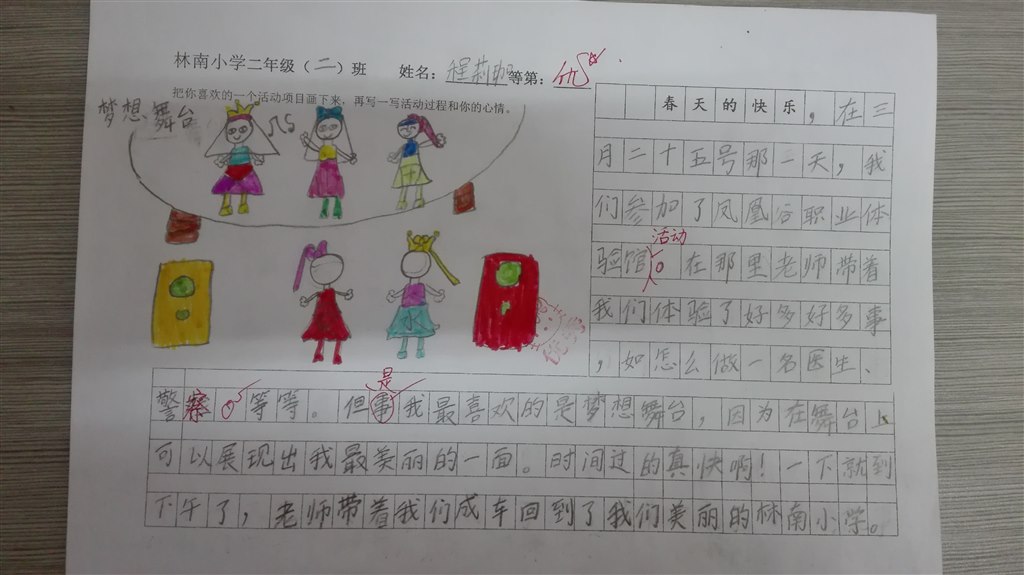 林南小学二年级（二）班 姓名：程莉 等第：优
把你喜欢的一个活动项目画下来，再写一写活动过程和你的心情。
梦想舞台
春天的快乐，在三
月二十五号那一天，我
们参加了凤凰谷职业体
活动
验馆。在那里老师带着
我们体验了好多好多事
，如怎么做一名医生、
是
警察。等等。但事我最喜欢的是梦想舞台，因为在舞台上
可以展现出我最美丽的一面。时间过的真快啊！一下就到
下午了，老师带着我们成车回到了我们美丽的林南小学。
水